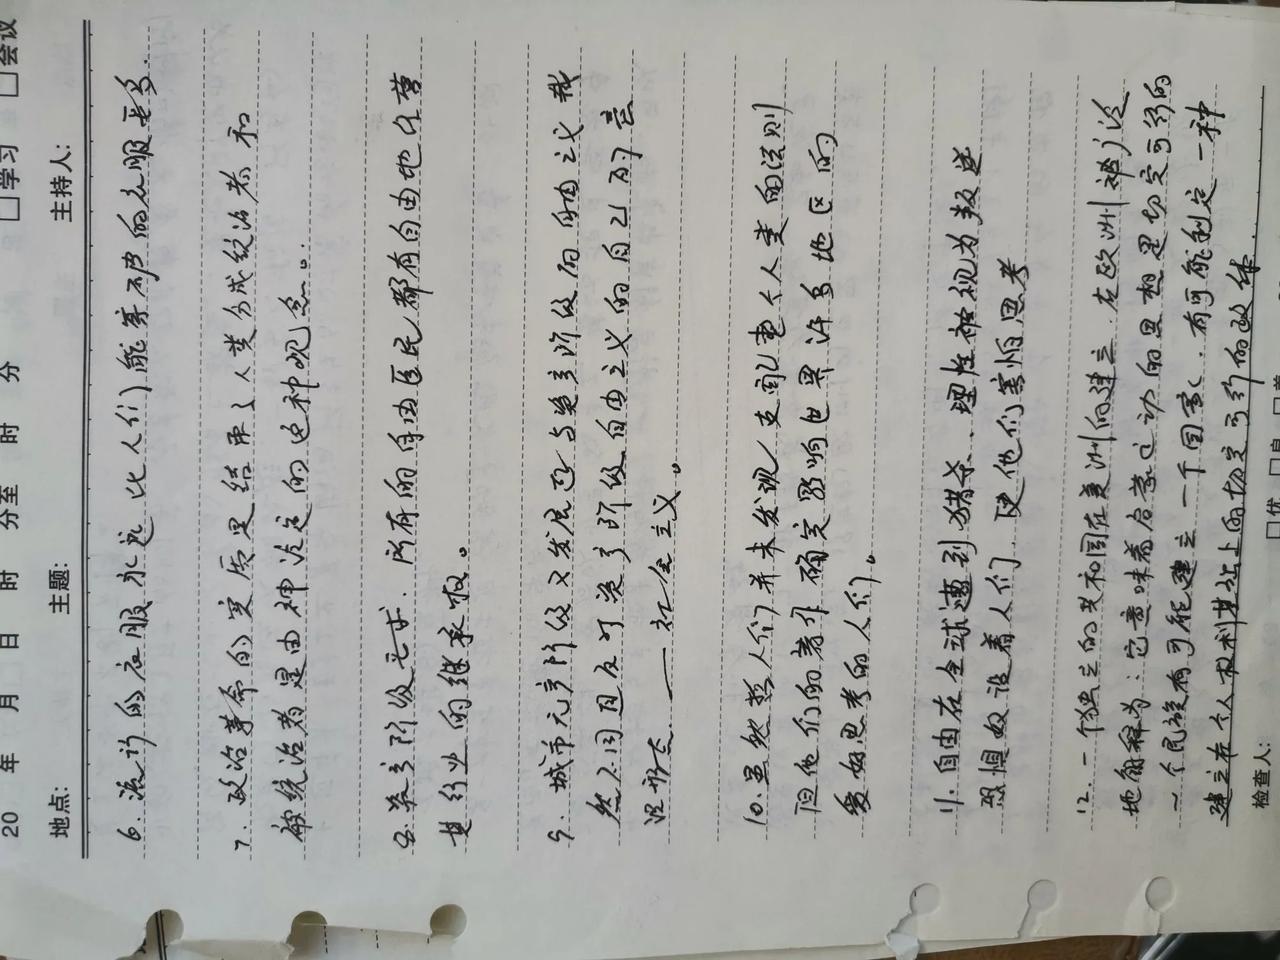 20 年 月 日 时 分至 时 分 □学习 □会议
地点: 主题: 主持人:
6. 流行的衣服永远比人们能穿破的衣服要多.
7. 政治革命的实质是结束了人类分成统治者和
被统治者是由神决定的这种观念。
8. 资产阶级要求. 所有的自由臣民都有自由地经营
其行业的继承权。
9. 城市无产阶级又发展恐与资产阶级的自由主义截
然不同且反对资产阶级自由主义的自己的意
识形态——社会主义。
10. 虽然哲人们并未发现/支配整个人类的法则
但他们的著作确实影响世界许多地区的
爱好思考的人们。
11. 自由在全球遭到猎杀、理性被视为叛逆
恐惧奴役着人们. 使他们害怕思考
12. 一个独立的共和国在美洲的建立. 在欧洲被广泛
地解释为: 它意味着启蒙运动的思想是切实可行的
一个民族有可能建立一个国家, 有可能制定一种
建立在个人权利基础上的切实可行的政体
检查人: □优 □良